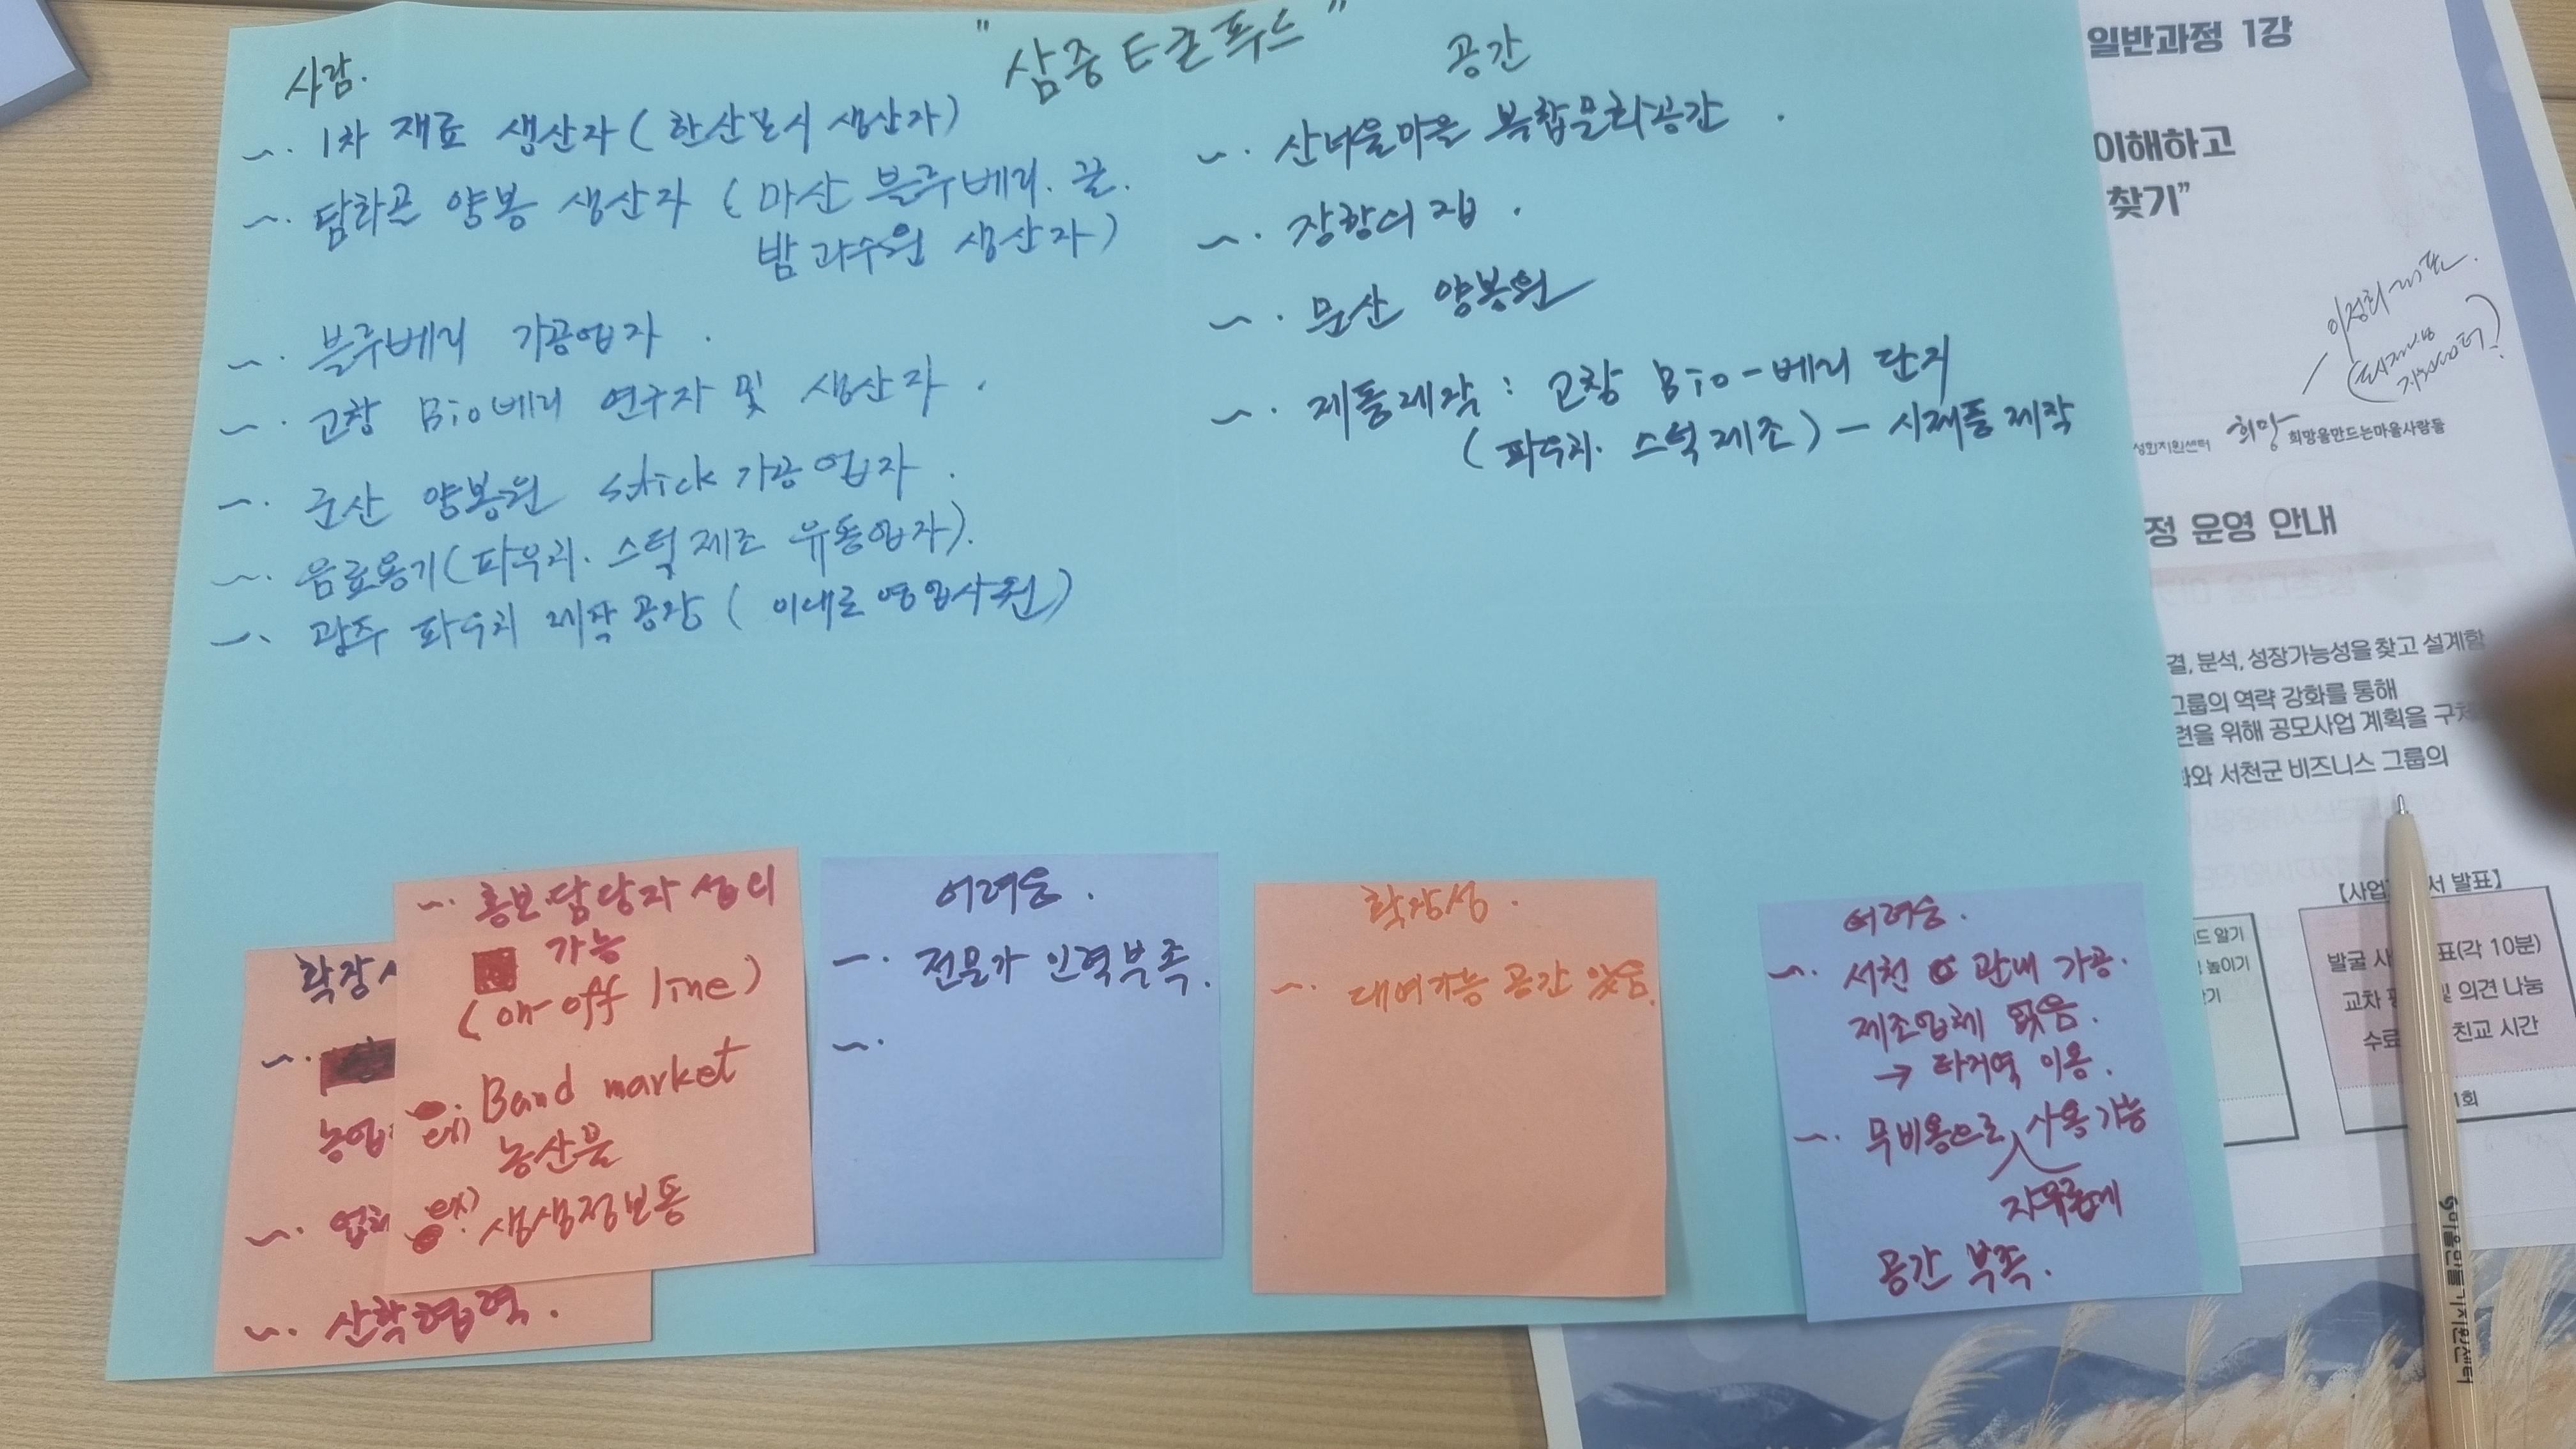 "삼중 E군푸드"
사람.
~. 1차 재료 생산자 (한산모시 생산자)
~. 담화곤 양봉 생산자 (마산 블루베리. 꿀.
밤 과수원 생산자)
~. 블루베리 가공업자.
~. 고창 Bio베리 연구자 및 생산자.
~. 군산 양봉원 stick 가공업자.
~. 음료용기(파우치. 스틱 제조 유통업자).
~. 광주 파우치 제작공장 (이대로 영업사원)
공간
~. 산너울마을 복합문화공간.
~. 장항의 집.
~. 문산 양봉원
~. 제품제작 : 고창 Bio-베리 단지
(파우치. 스틱제조) - 시제품 제작
확장
~.
농업
~. 업체
~. 산학협력.
~. 홍보담당자 섭외
가능
(on-off line)
ex) Band market
농산물
ex) 생생정보통
어려움.
~. 전문가 인력부족.
~.
확장성.
~. 대여가능 공간 있음.
어려움.
~. 서천 관내 가공.
제조업체 없음.
→ 타지역 이용.
~. 무비용으로 사용가능
자유롭게
공간 부족.
일반과정 1강
이해하고
찾기"
성화지원센터 희망 희망을만드는마을사람들
정 운영 안내
결, 분석, 성장가능성을 찾고 설계함
그룹의 역략 강화를 통해
련을 위해 공모사업 계획을 구체
화와 서천군 비즈니스 그룹의
【사업 서 발표】
드 알기
높이기
기
발굴 사 표(각 10분)
교차 및 의견 나눔
수료 친교 시간
1회
마을만들기지원센터